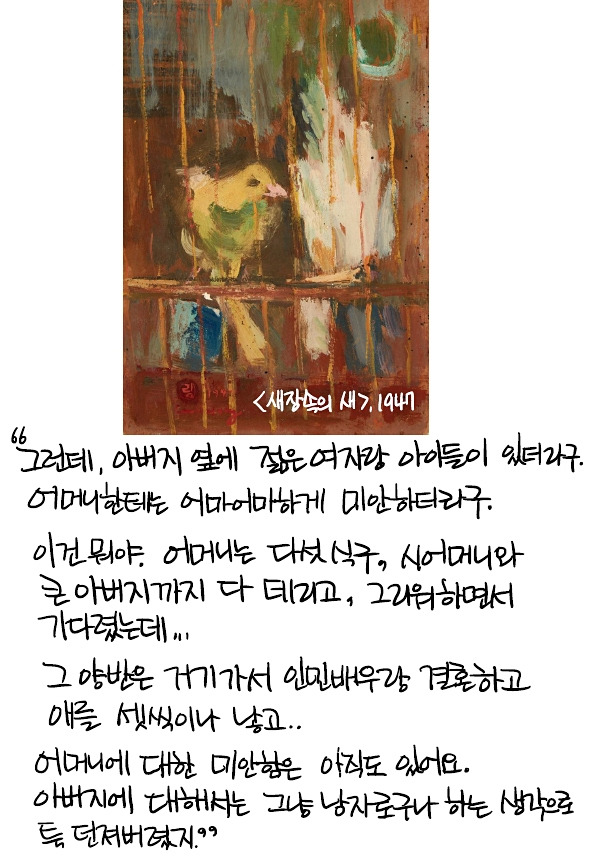 <새장속의 새>, 1947
"그런데, 아버지 옆에 젊은 여자랑 아이들이 있더라구.
어머니한테는 어마어마하게 미안하더라구.
이건 뭐야. 어머니는 다섯 식구, 시어머니와
큰 아버지까지 다 데리고, 그리워하면서
기다렸는데...
그 양반은 거기가서 인민배우랑 결혼하고
애를 셋씩이나 낳고..
어머니에 대한 미안함은 아직도 있어요.
아버지에 대해서는 그냥 남자로구나 하는 생각으로
툭 던져버렸지."